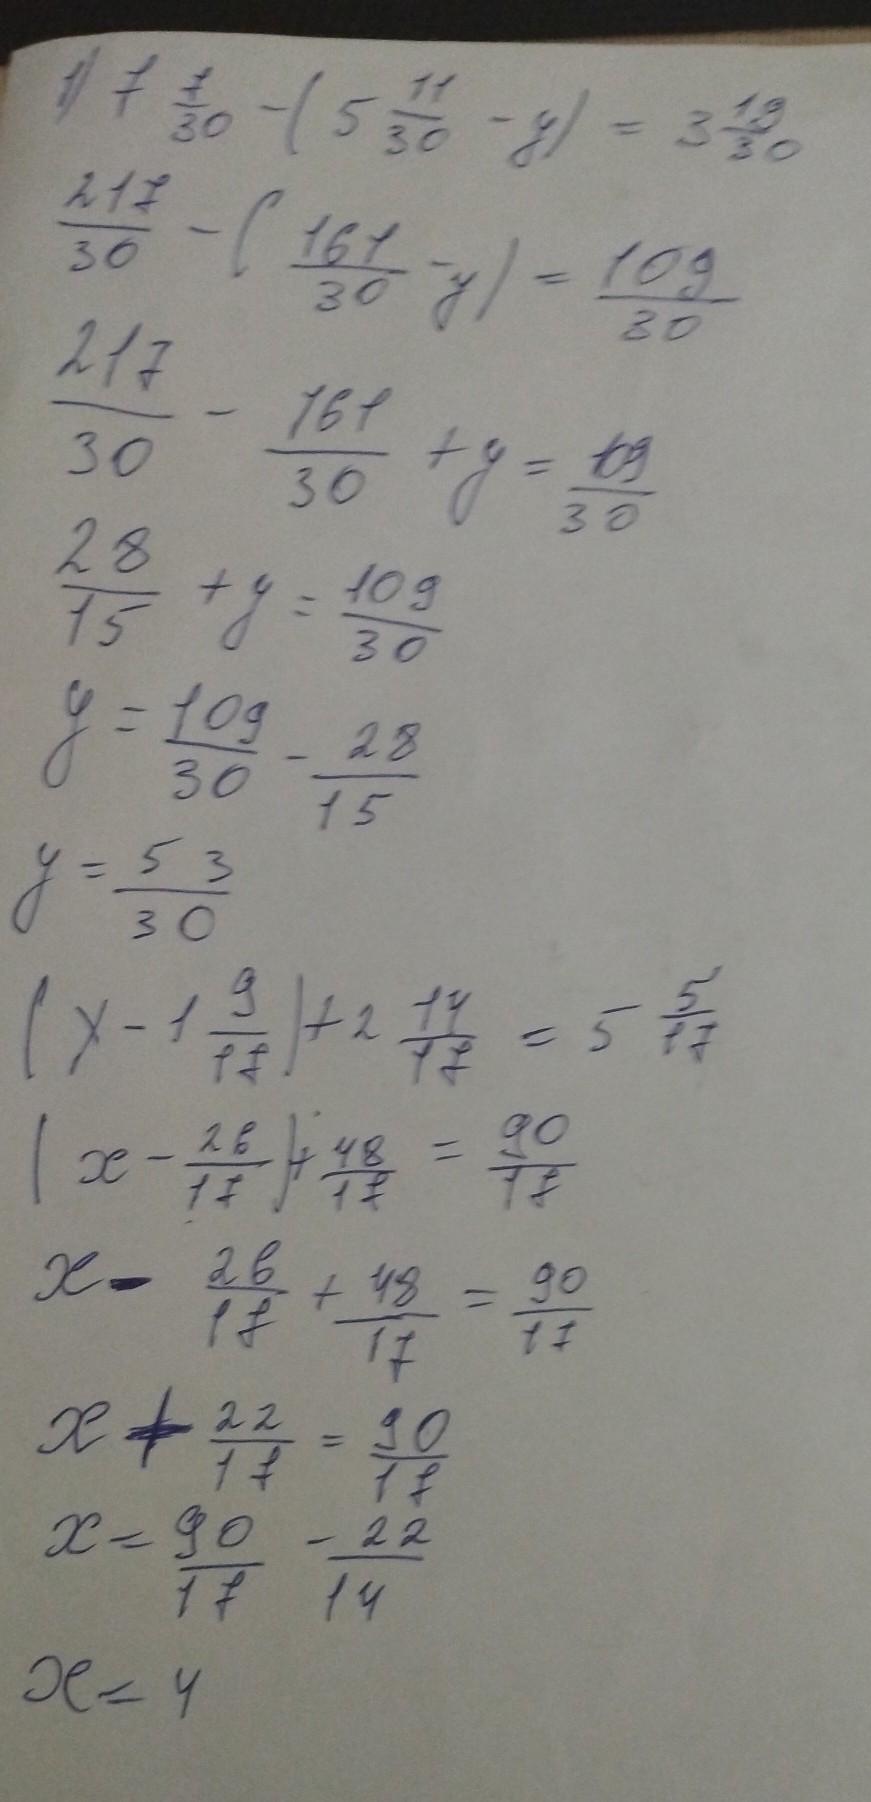 1) 7 7/30 - (5 11/30 - y) = 3 19/30
217/30 - (161/30 - y) = 109/30
217/30 - 161/30 + y = 109/30
28/15 + y = 109/30
y = 109/30 - 28/15
y = 53/30
(x - 1 9/17) + 2 14/17 = 5 5/17
(x - 26/17) + 48/17 = 90/17
x - 26/17 + 48/17 = 90/17
x + 22/17 = 90/17
x = 90/17 - 22/14
x = 4